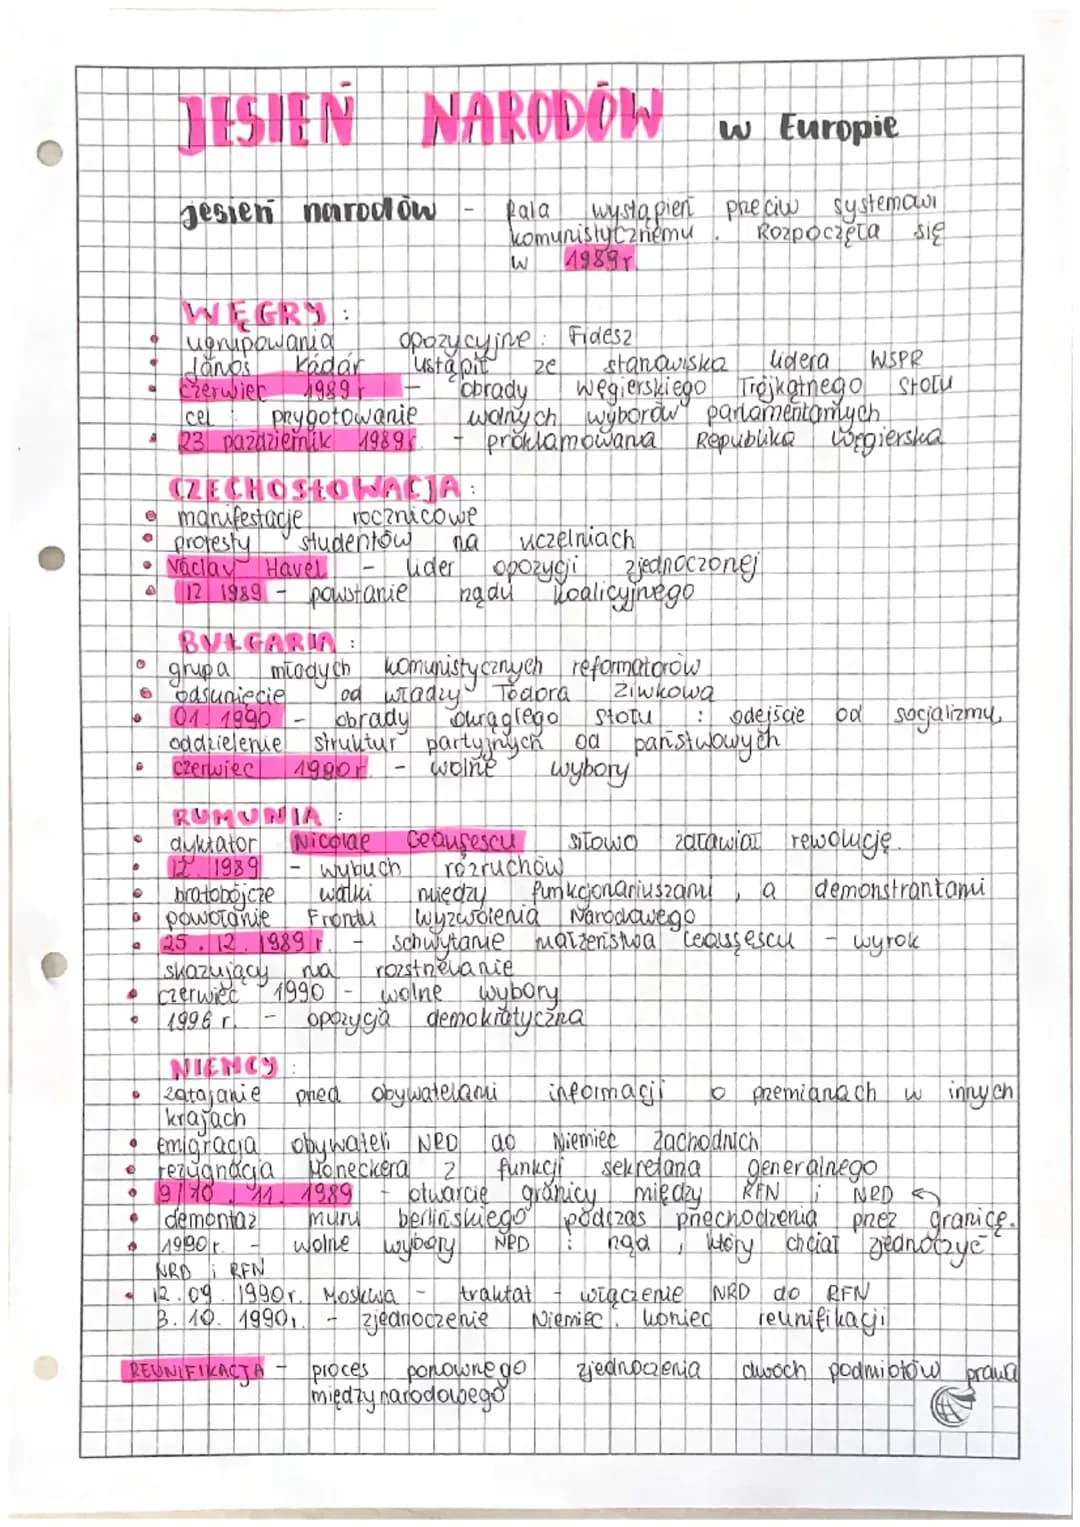 JESIEŃ NARODÓW w Europie
jesień narodów - fala wystąpień przeciw systemowi
komunistycznemu. Rozpoczęła się
w 1989r
WĘGRY:
ugrupowania opozycyjne: Fidesz
János Kádár ustąpił ze stanowiska lidera WSPR
czerwiec 1989 r - obrady węgierskiego Trójkątnego Stołu
cel: przygotowanie wolnych wyborów parlamentarnych
23 październik 1989r - proklamowana Republika Węgierska
CZECHOSŁOWACJA:
manifestacje rocznicowe
protesty studentów na uczelniach
Václav Havel - lider opozycji zjednoczonej
12 1989 - powstanie rządu koalicyjnego
BUŁGARIA:
grupa młodych komunistycznych reformatorów
odsunięcie od władzy Todora Ziwkowa
01. 1990 - obrady okrągłego stołu: odejście od socjalizmu,
oddzielenie struktur partyjnych od państwowych
czerwiec 1990r. - wolne wybory
RUMUNIA:
dyktator Nicolae Ceauşescu siłowo załawiał rewolucję.
12. 1989 - wybuch rozruchów
bratobójcze walki między funkcjonariuszami, a demonstrantami
powołanie Frontu Wyzwolenia Narodowego
25. 12. 1989 r. - schwytanie małżeństwa Ceauşescu - wyrok
skazujący na rozstrzelanie
czerwiec 1990 - wolne wybory
1996 r. - opozycja demokratyczna
NIEMCY:
zatajanie przed obywatelami informacji o przemianach w innych
krajach
emigracja obywateli NRD do Niemiec Zachodnich
rezygnacja Honeckera z funkcji sekretarza generalnego
9/10. 11. 1989 - otwarcie granicy między RFN i NRD
demontaż muru berlińskiego podczas przechodzenia przez granicę.
1990r. - wolne wybory NRD: rząd, który chciał zjednoczyć
NRD i RFN
12.09. 1990r. Moskwa - traktat - włączenie NRD do RFN
3. 10. 1990r. - zjednoczenie Niemiec. koniec reunifikacji
REUNIFIKACJA - proces ponownego zjednoczenia dwoch podmiotów prawa
międzynarodowego